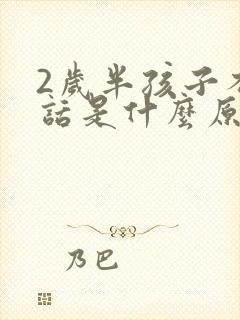 2歲半孩子
話是什麼原
乃巴